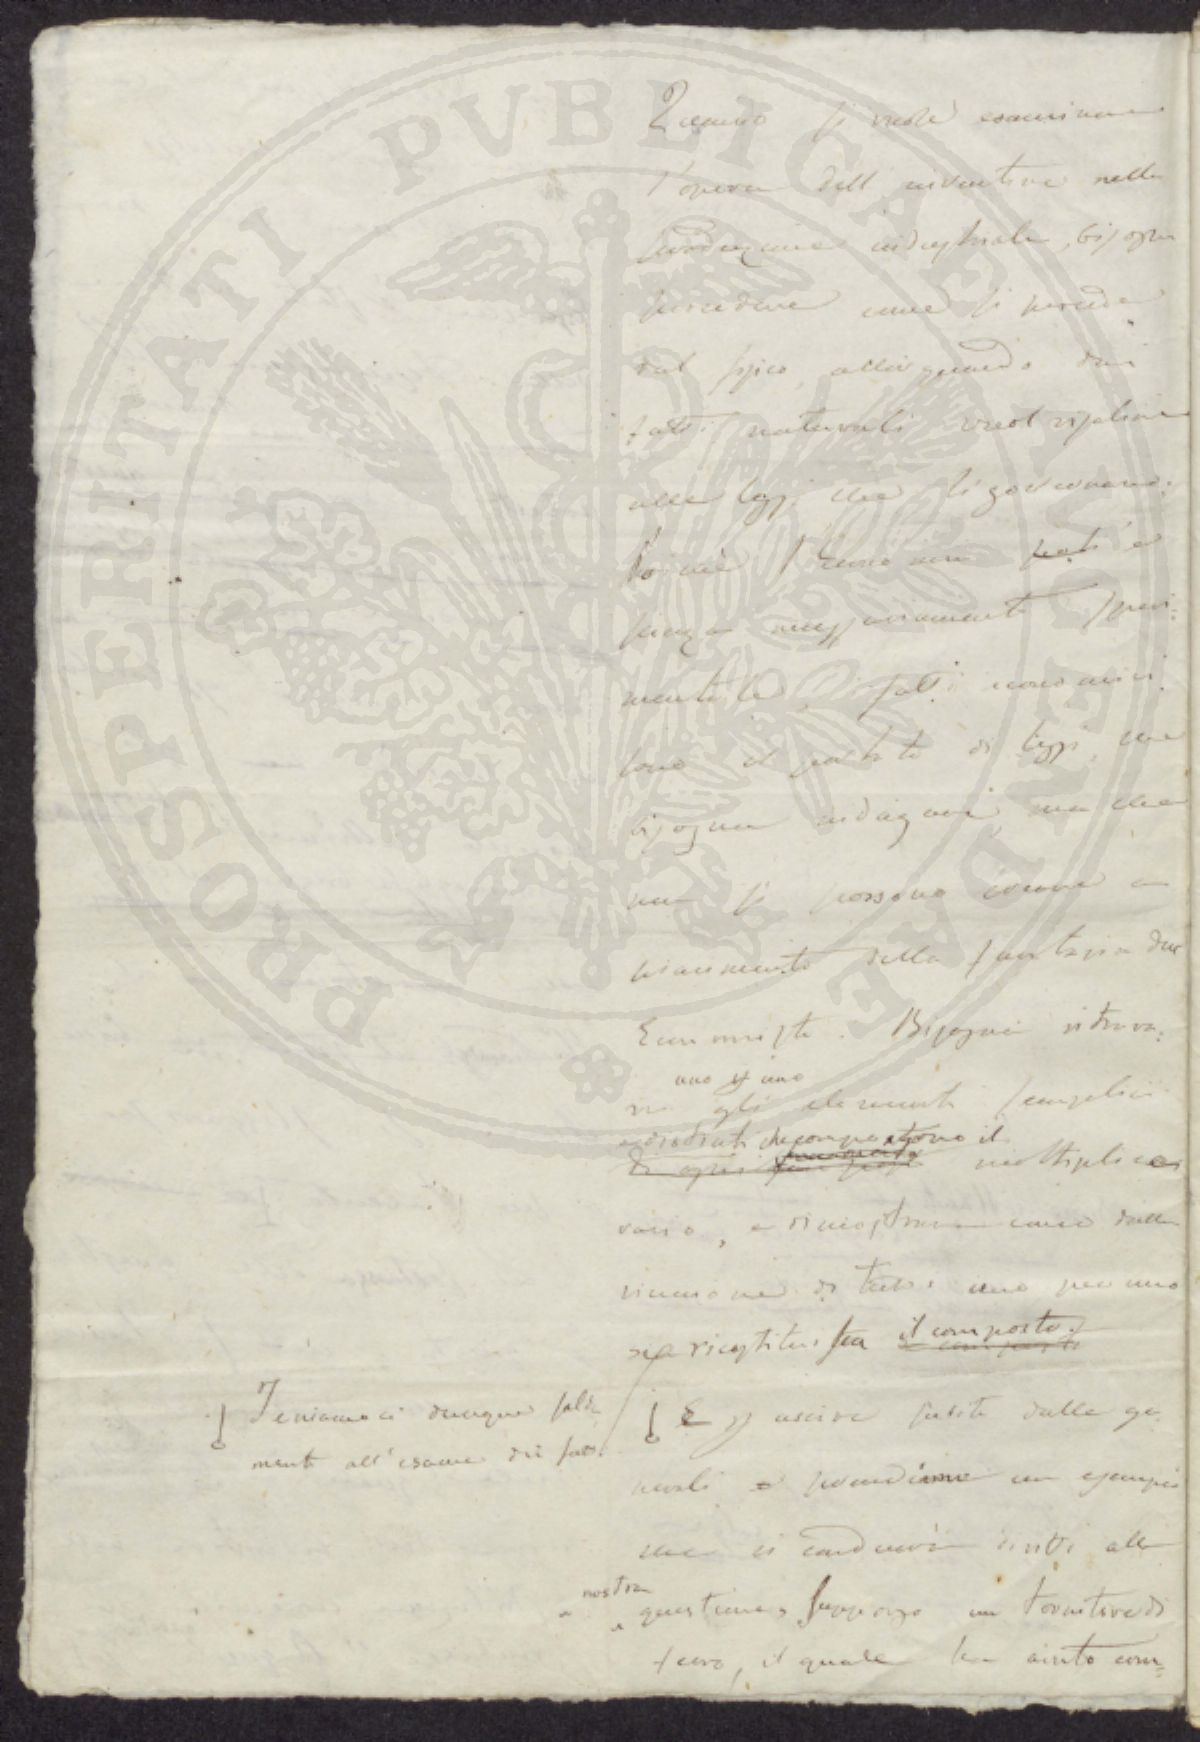 PROSPERITATI PVBLICAE AVGENDAE
Quando si vuole esaminare
l'opera dell'inventore nella
produzione industriale, bisogna
procedere come si procede
dal fisico, allorquando dai
fatti naturali vuol risalire
alle leggi che li governano.
Poichè l'economia è
scienza necessariamente speri-
mentale, i fatti economici
sono il portato di leggi, che
bisogna indagare, ma che
non si possono creare a
piacimento della fantasia due
Economisti. Bisogna ritrova-
uno per uno
re gli elementi semplici
che compongono il
di ogni moltiplice
vario, e dimostrare come dalla
riunione di tutti uno per uno
si ricostituisca il composto.
Teniamoci dunque salda
mente all'esame dei fatti.
E per uscire subito dalle ge-
nerali prendiamo un esempio
che ci condurrà diritti alla
nostra
questione, suppongo un tornitore di
ferro, il quale ha avuto com-